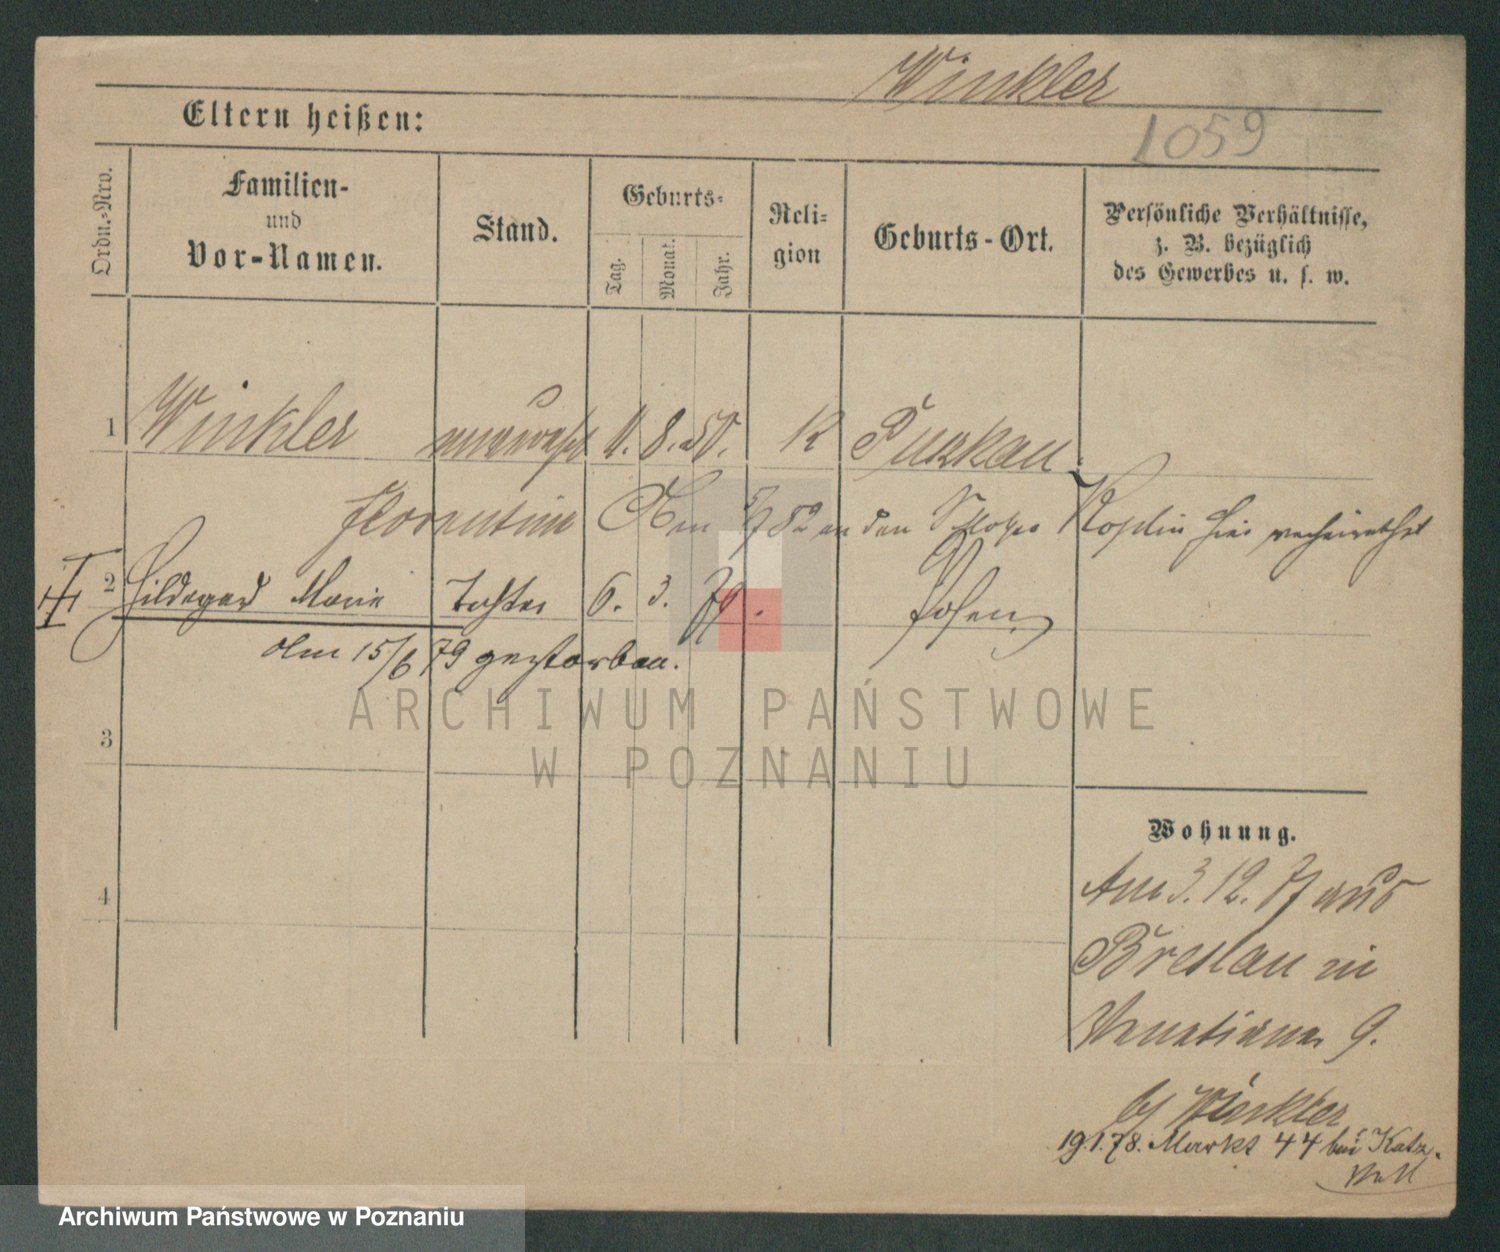 Winkler
1059
Eltern heißen:
Ordn.-Nro.
Familien-
und
Vor-Namen.
Stand.
Geburts-
Tag.
Monat.
Jahr.
Reli-
gion
Geburts-Ort.
Persönliche Verhältnisse,
z. B. bezüglich
des Gewerbes u. s. w.
1 Winkler 11. 8. 50. K
Florentine 82 an den hier verheirathet
2 Hildegard Marie Tochter 6. 3. 79. Posen
am 15/6 79 gestorben.
3
4
Wohnung.
Am 3. 12. 77 aus
Breslau in
Venetianer 9.
b/ Winkler
19.1.78. Markt 44 bei Katz.
ARCHIWUM PAŃSTWOWE
W POZNANIU
Archiwum Państwowe w Poznaniu